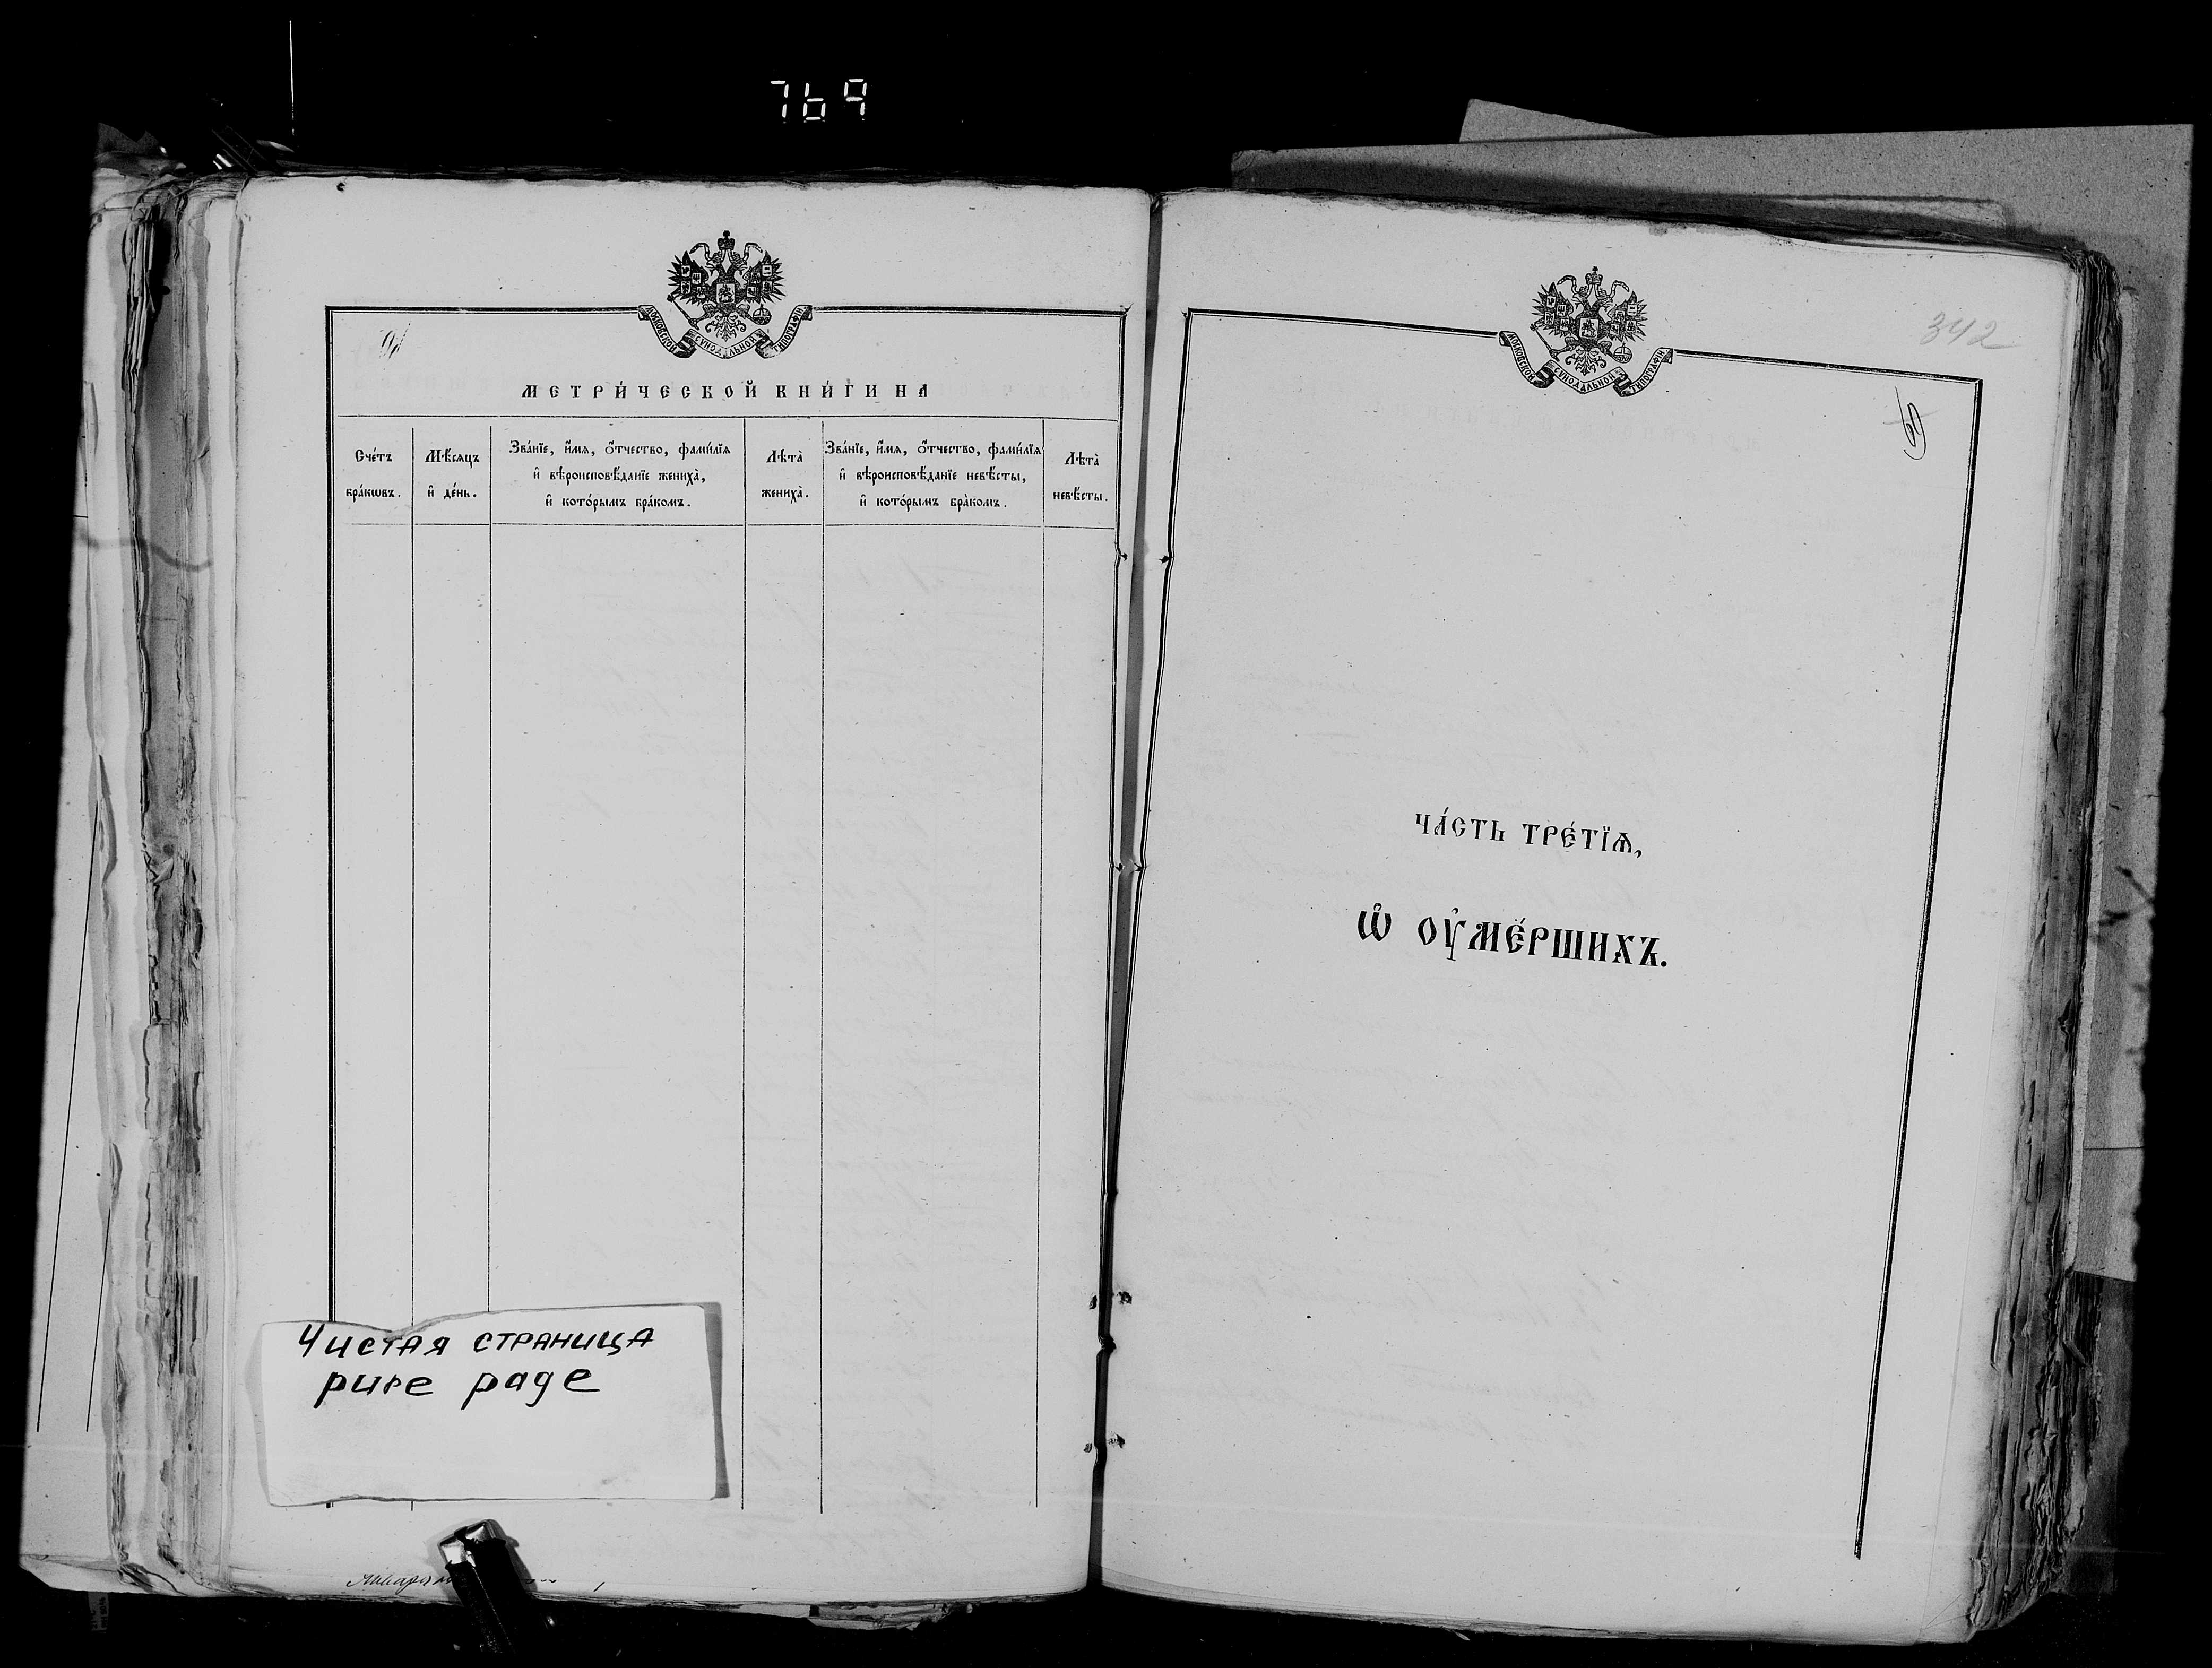 769
МОСКОВСКОЙ СѴНОДАЛЬНОЙ ТИПОГРАФІИ
МЕТРИ́ЧЕСКОЙ КНИ́ГИ НА
Сче́тъ бра́кѡвъ.
Мѣ́сяцъ и҆ де́нь.
Зва́нїе, и҆́мя, ѻ҆́тчество, фами́лїя
и҆ вѣроисповѣ́данїе жениха̀,
и҆ кото́рымъ бра́комъ.
Лѣта̀ жениха̀.
Зва́нїе, и҆́мя, ѻ҆́тчество, фами́лїя
и҆ вѣроисповѣ́данїе невѣ́сты,
и҆ кото́рымъ бра́комъ.
Лѣта̀ невѣ́сты.
Чистая страница
pure page
МОСКОВСКОЙ СѴНОДАЛЬНОЙ ТИПОГРАФІИ
342
ЧА́СТЬ ТРЕ́ТЇѦ,
Ѡ҆ ОУ҆МЕ́РШИХЪ.